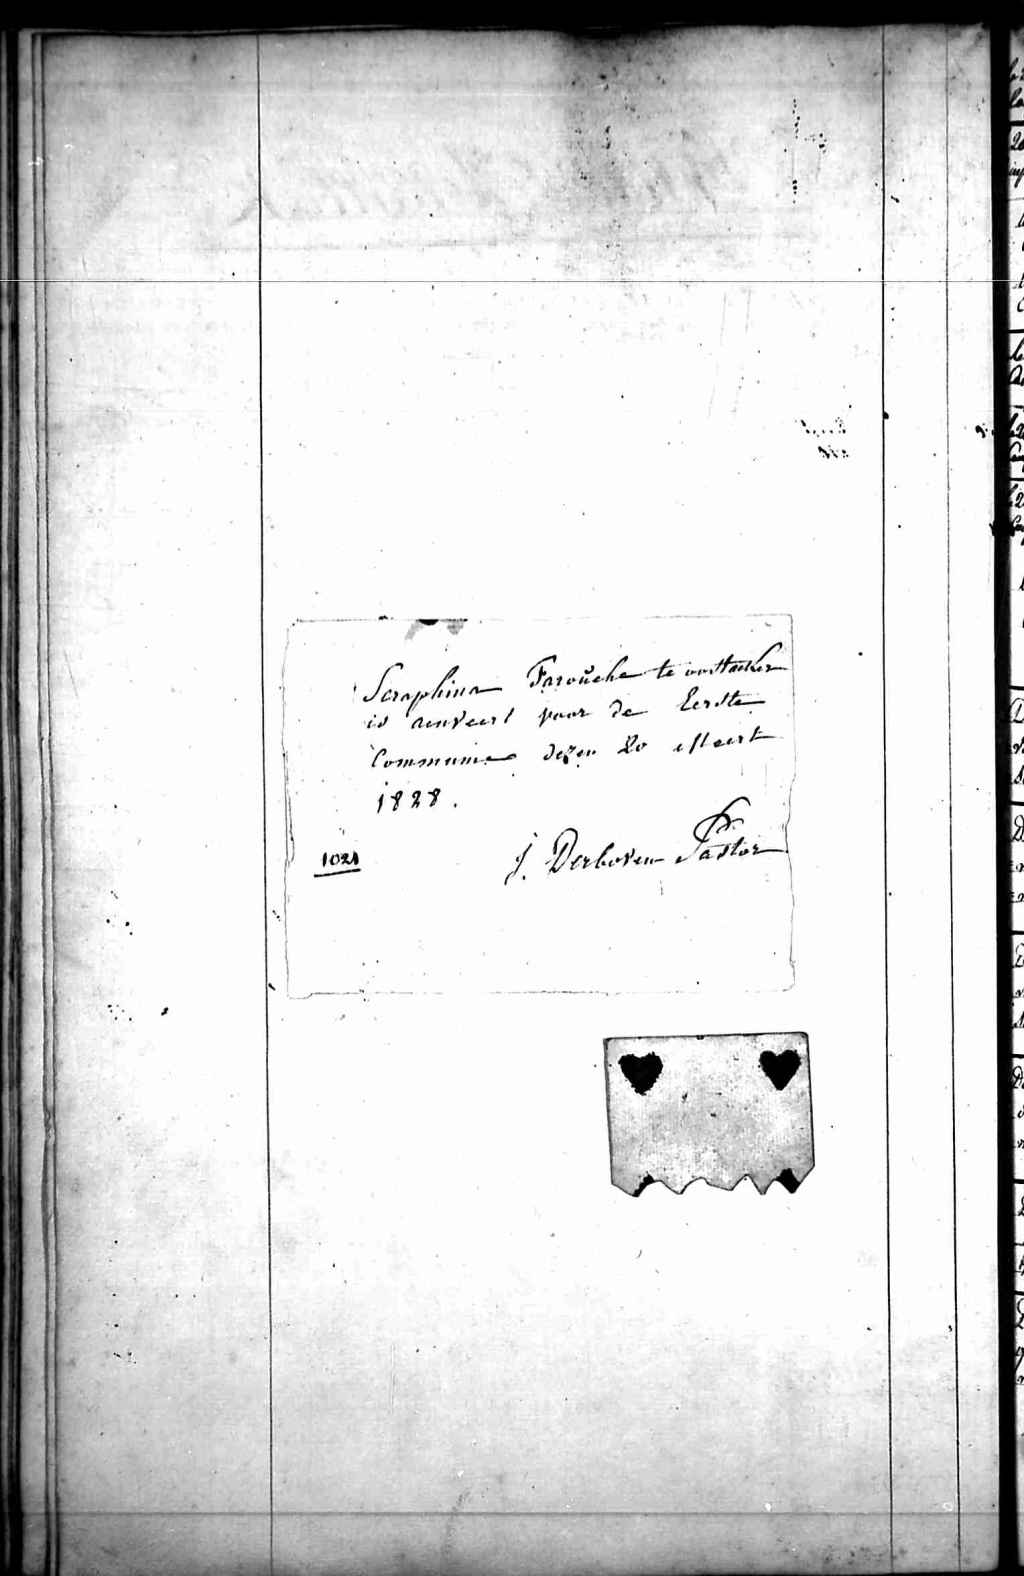 Seraphina Farouche te oostacker
is aenveert voor de Eerste
Communie dezen 20 Meert
1828.
1021
J. Derboven Pastor